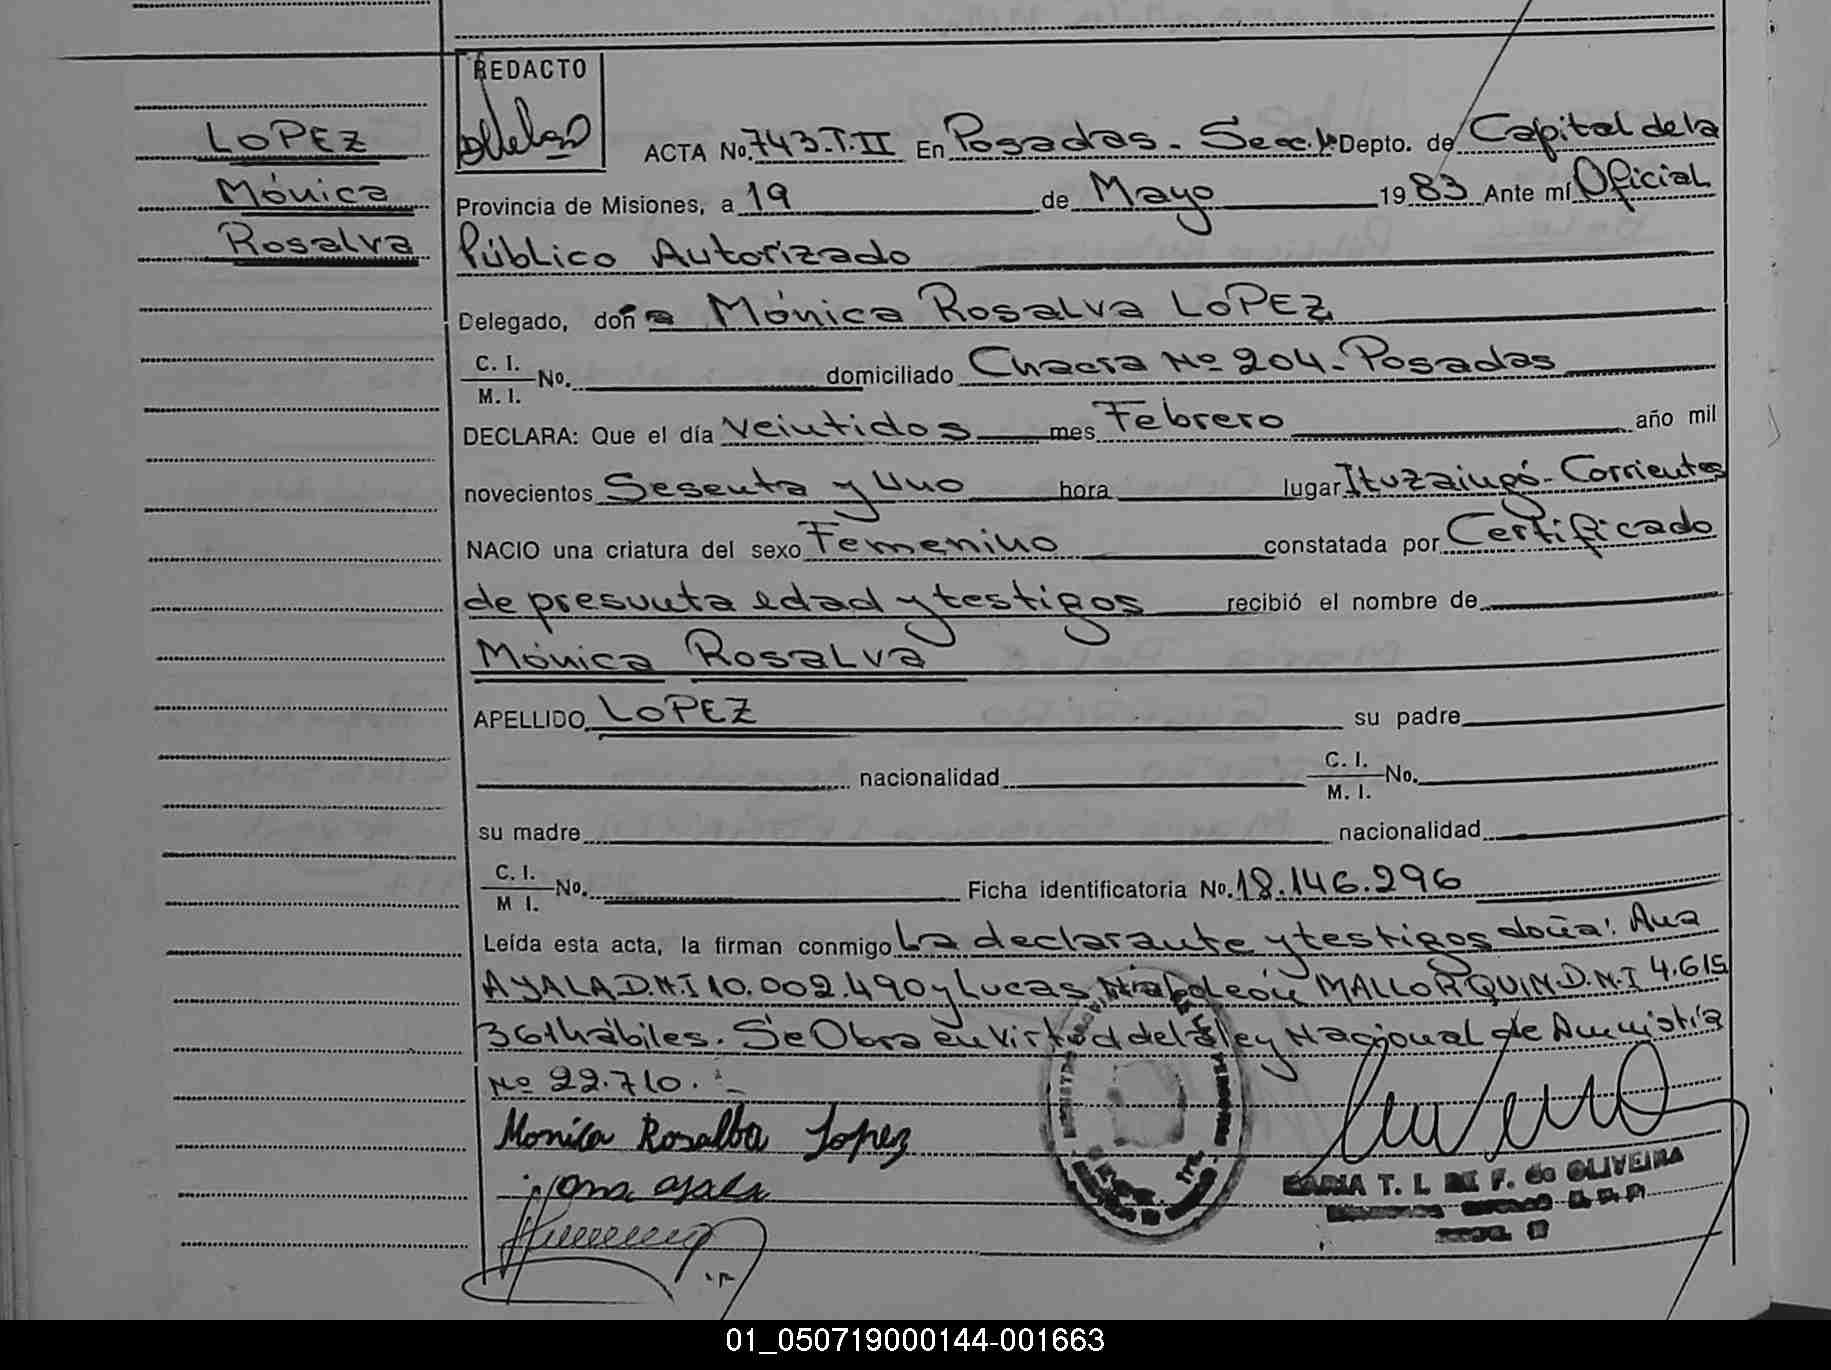 REDACTO
LOPEZ
Mónica
Rosalva
ACTA No. 743.T.II En Posadas - Secc. 1ª Depto. de Capital de la
Provincia de Misiones, a 19 de Mayo 1983 Ante mí Oficial
Público Autorizado
Delegado, doña Mónica Rosalva LOPEZ
C. I.
M. I. No. domiciliado Chacra Nº 204 - Posadas
DECLARA: Que el día veintidos mes Febrero año mil
novecientos Sesenta y Uno hora lugar Ituzaingó - Corrientes
NACIO una criatura del sexo Femenino constatada por Certificado
de presunta edad y testigos recibió el nombre de
Mónica Rosalva
APELLIDO LOPEZ su padre
nacionalidad C. I.
M. I. No.
su madre nacionalidad
C. I.
M I. No. Ficha identificatoria No. 18.146.296
Leída esta acta, la firman conmigo La declarante y testigos doña: Ana
AYALA D.N.I 10.002.490 y Lucas Napoleón MALLORQUIN D.N.I 4.615
361 hábiles. Se Obra en virtud de la Ley Nacional de Amnistía
Nº 22.710. -
Monica Rosalba Lopez
ana ayala
MARIA T. L. DE F. do OLIVEIRA
01_050719000144-001663